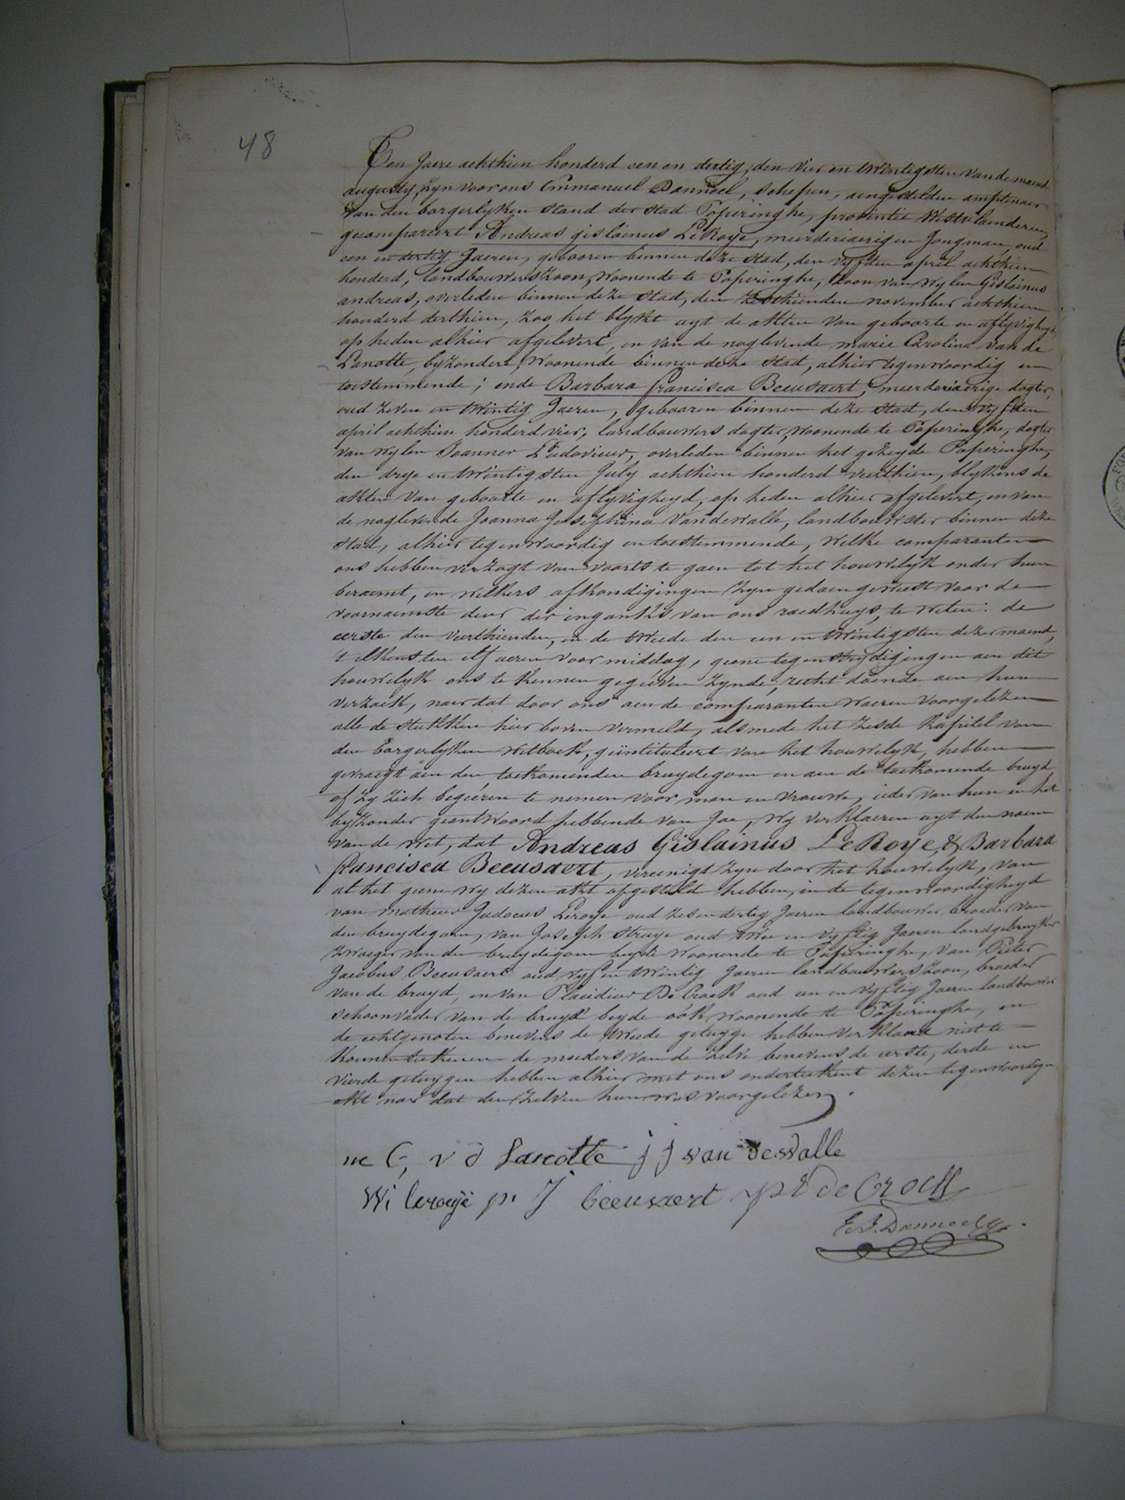 48
Ten Jaere achthien honderd een en dertig, den vier en twintigsten van de maend
augusty, zyn voor ons Emmanuel Donnoel, schepen, aengestelden amptenaer
van den borgerlyken stand der stad Poperinghe, provintie Westvlaenderen,
gecompareert Andreas gislainus LeRoye, meerderjaerigen Jongman, oud
een en dertig Jaeren, gebooren binnen deze stad, den vyfden april achthien
honderd, landbouwerszoon, woonende te Poperinghe, zoon van wylen Gislainus
andreas, overleden binnen deze stad, den november achthien
honderd derthien, zoo het blykt uyt de akten van geboorte en aflyvigheyd,
op heden alhier afgelevert, en van de naglevende marie Carolina van de
Lanotte, byzondere, woonende binnen deze stad, alhier tegenwoordig en
toestemmende; ende Barbara francisca Beeusaert, meerderjaerige dogter,
oud zeven en twintig Jaeren, gebooren binnen deze stad, den vyfden
april achthien honderd vier, landbouwers dogter, woonende te Poperinghe, dogter
van wylen Joannes Ludovicus, overleden binnen het gezeyde Poperinghe,
den drye en twintigsten July achthien honderd veerthien, blykens de
akten van geboorte en aflyvigheyd, op heden alhier afgelevert, en van
de naglevende Joanna Josephina Vandewalle, landbouwster binnen deze
stad, alhier tegenwoordig en toestemmende, welke comparanten
ons hebben verzogt van voorts te gaen tot het houwelyk onder hun
beraemt, en welkers afkondigingen zyn gedaen geweest voor de
voornaemste deur der inganks van ons raedhuys, te weten: de
eerste den veerthienden, en de tweede den een en twintigsten dezer maend,
't elkens ten elf ueren voor middag, geene tegenstrydigingen aen dit
houwelyk ons te kennen gegeéven zynde, recht doende aen hun
verzoek, naer dat door ons aen de comparanten waeren voorgelezen
alle de stukken hier boven vermeld, alsmede het zesde kapitel van
den borgerlyken wetboek, geïntituleert van het houwelyk, hebben
gevraegt aen den toekomenden bruydegom en aen de toekomende bruyd
of zy zich begéeren te nemen voor man en vrouwe, ieder van hun in het
byzonder geantwoord hebbende van Jae, wy verklaeren uyt den naem
van de wet, dat Andreas Gislainus LeRoye, & Barbara
francisca Beeusaert, vereenigt zyn door het houwelyk, van
al het geene wy dezen akt opgesteld hebben, in de tegenwoordigheyd
van Matheus Judocus Leroye oud zes en dertig Jaeren landbouwer broeder van
den bruydegom, van Joseph Struye oud twee en vyftig Jaeren landgebruyker
zwaeger van den bruydegom beyde woonende te Poperinghe, van Pieter
Jacobus Beeusaert oud vyf en twintig Jaeren landbouwerszoon, broeder
van de bruyd, en van Placidus De Croek oud een en vyftig Jaeren landbouwer
schoonvader van de bruyd beyde oók woonende te Poperinghe, en
de echtgenoten benevens de tweede getuyge hebben verklaard niet te
konnen teekenen de moeders van de zelve benevens de eerste, derde en
vierde getuygen hebben alhier met ons onderteekent dezen tegenwoordigen
akt naer dat den zelven hun was voorgelezen.
m C, v d Lanotte j j van dewalle
leroye p. J beeusaert pl deCroek
E.J. Donnoel